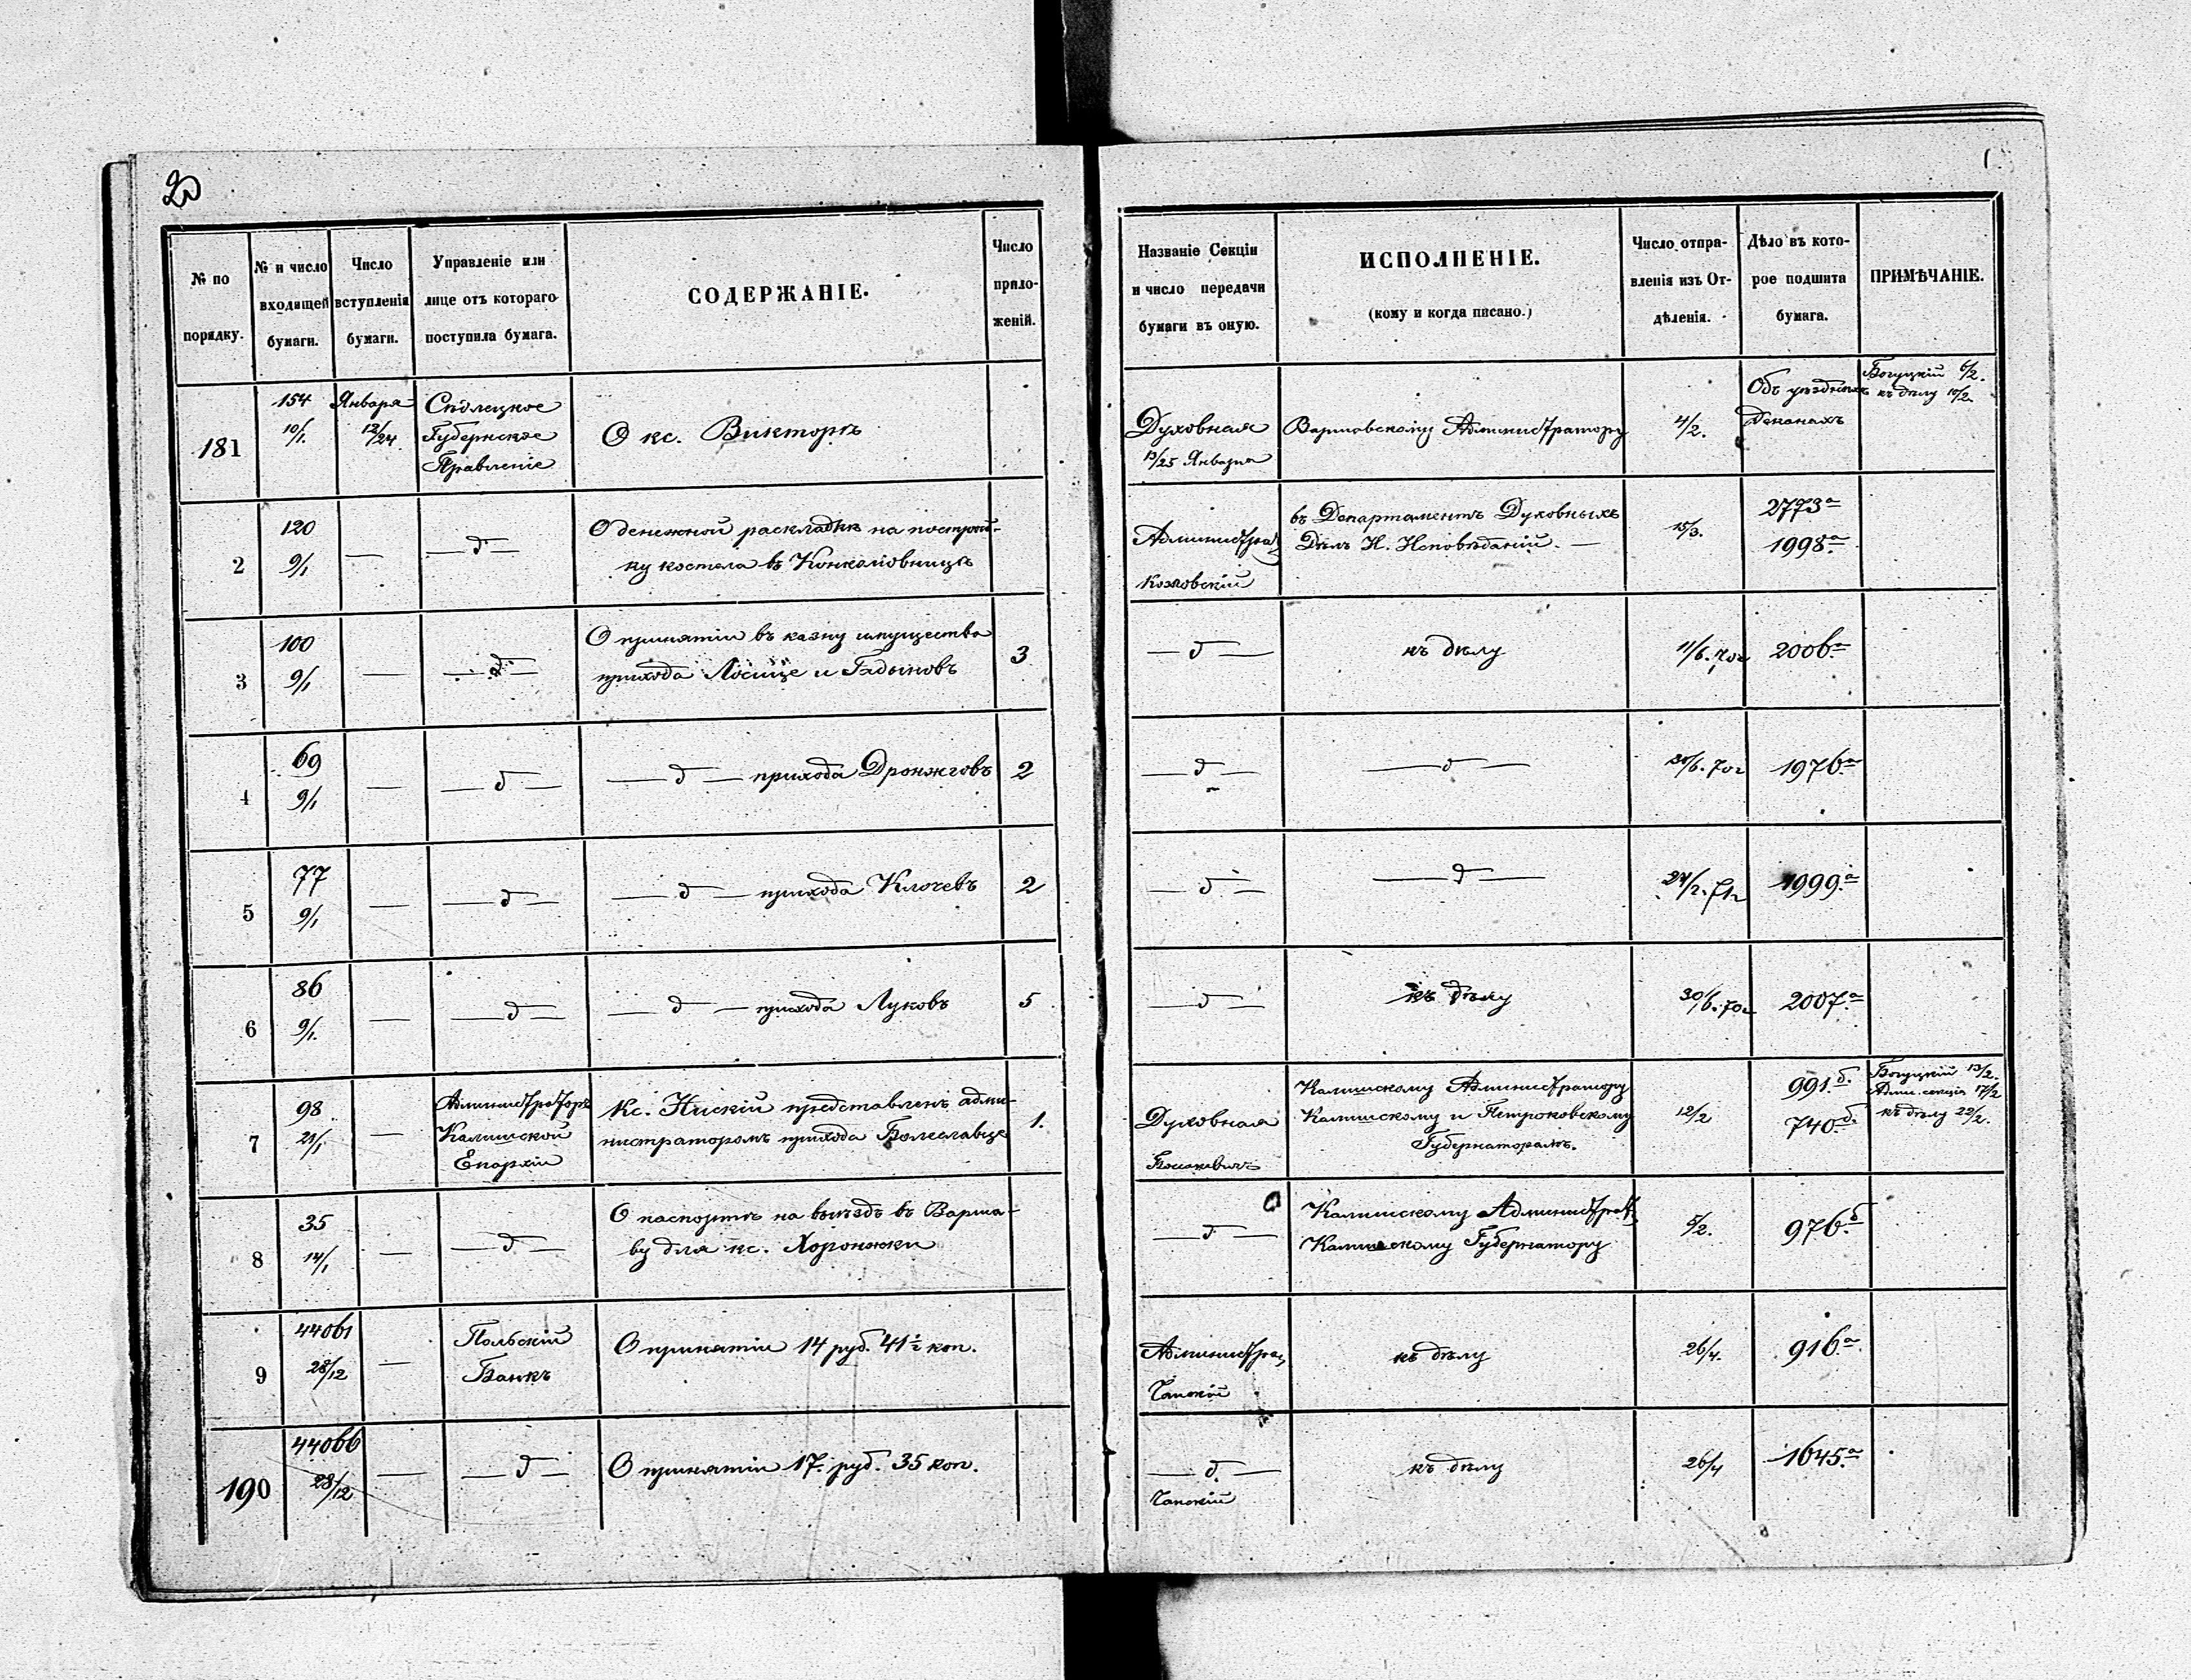 20
№ по порядку.
№ и число входящей бумаги.
Число вступленія бумаги.
Управленіе или лице отъ котораго поступила бумага.
СОДЕРЖАНІЕ.
Число приложеній.
Названіе Секціи и число передачи бумаги въ оную.
ИСПОЛНЕНІЕ.
(кому и когда писано.)
Число отправленія изъ Отдѣленія.
Дѣло въ которое подшита бумага.
ПРИМѢЧАНІЕ.
181
154
10/1.
Января
12/24
Сѣдлецкое
Губернское
Правленіе
О кс. Викторѣ
Духовная
13/25 Января
Варшавскому Администратору
4/2.
Объ уѣздныхъ
Деканахъ
Богуцкій 6/2.
къ дѣлу 10/2.
2
120
9/1
—
— д —
О денежной раскладкѣ на построй-
ку костела въ
Администра
Козловскій
въ Департаментъ Духовныхъ
Дѣлъ И. Исповѣданій. —
15/3.
2773а
1998.а
3
100
9/1
—
— д —
О принятіи въ казну имущества
прихода Лосице и
3
— д —
къ дѣлу
11/6. 70г
2006.а
4
69
9/1
—
— д —
— д — прихода Дронжговъ
2
— д —
— д —
20/6. 70г
1976.а
5
77
9/1
—
— д —
— д — прихода Клочевъ
2
— д —
— д —
24/2. 71г
1999.а
6
86
9/1.
—
— д —
— д — прихода Луковъ
5
— д —
къ дѣлу
30/6. 70г
2007.а
7
98
21/1
—
Администраторъ
Калишской
Епархіи
Кс. Нискій представленъ адми-
нистраторомъ прихода Болеславице
1.
Духовная
Калишскому Администратору
Калишскому и Петроковскому
Губернаторамъ.
12/2
991.б.
740.б.
Богуцкій 13/2.
Адми. секція 17/2
къ дѣлу 22/2.
8
35
14/1
—
— д —
О паспортѣ на выѣздъ въ Варша-
ву для кс. Хоронжки
— д —
Калишскому Администрат.
Калишскому Губернатору
5/2.
976.б
9
44061
28/12
—
Польскій
Банкъ
О принятіи 14 руб. 41½ коп.
Администра,
къ дѣлу
26/4.
916.а
190
44066
28/12
—
— д —
О принятіи 17. руб. 35 коп.
— д —
къ дѣлу
26/4
1645.а